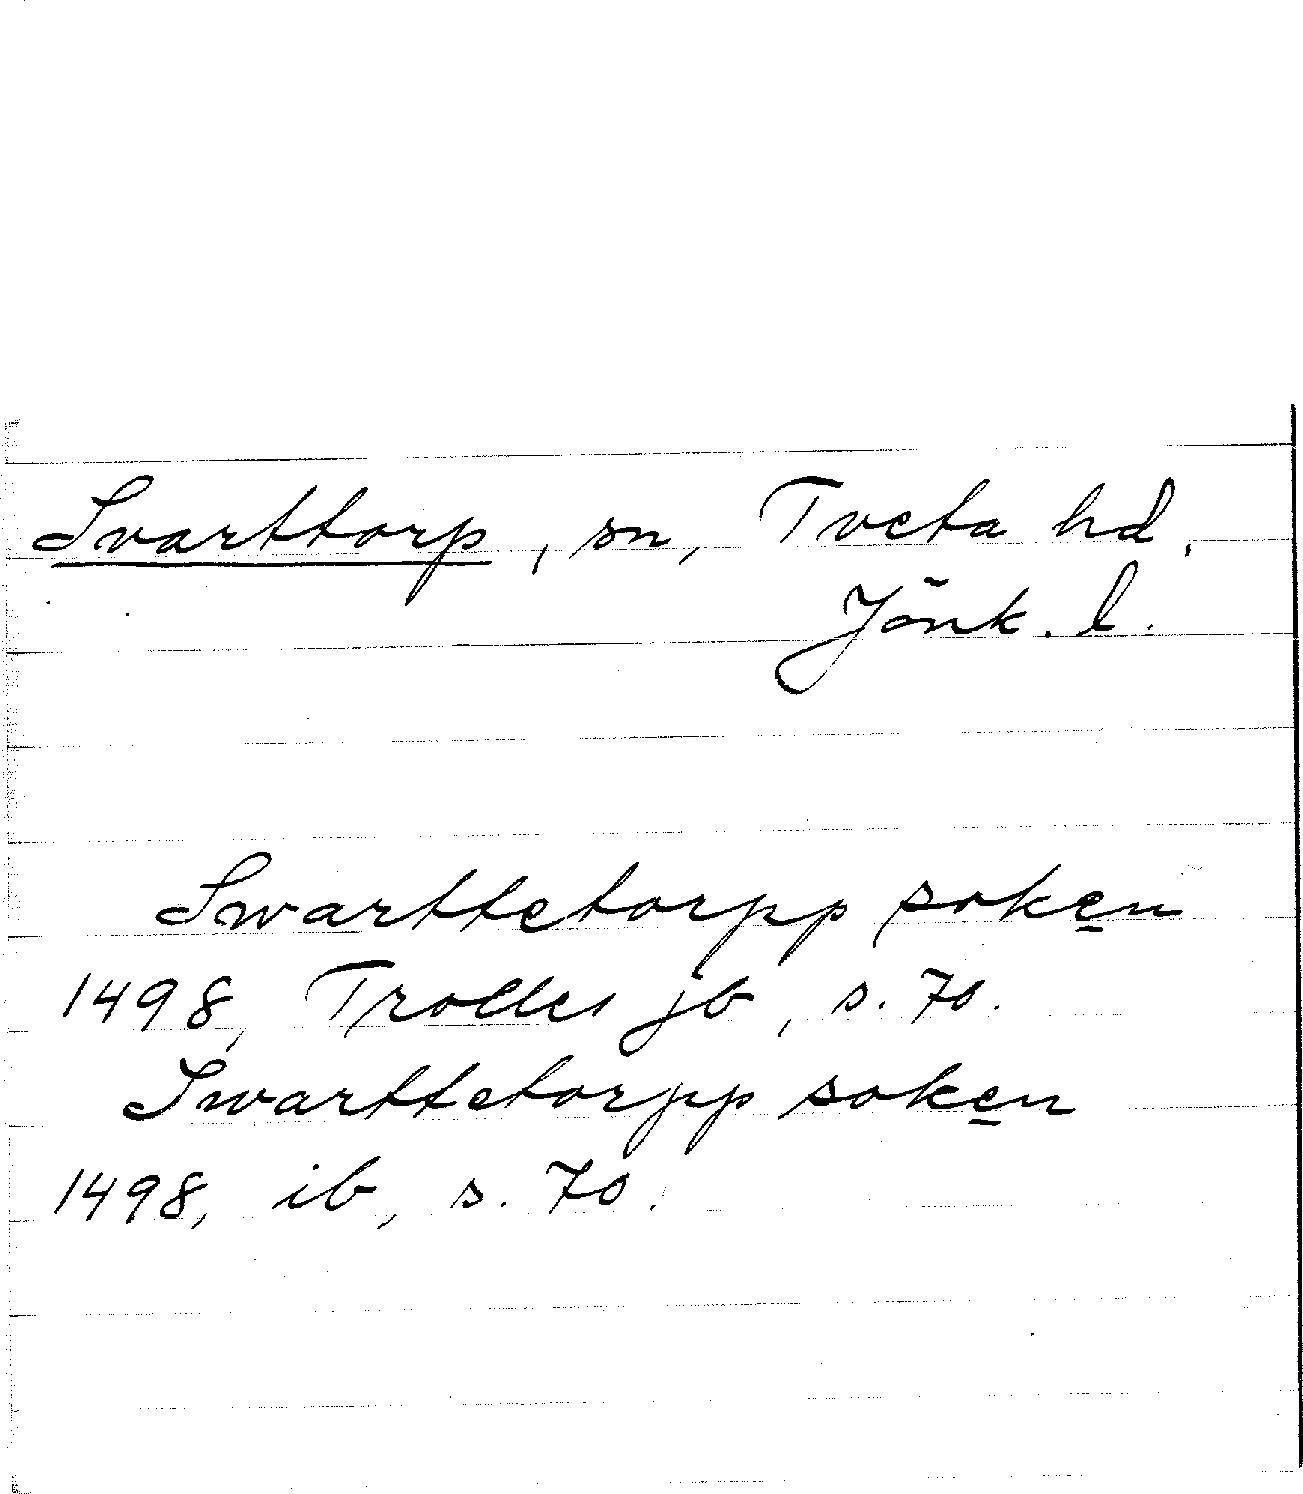 Svarttorp, sn, Tveta hd,
Jönk. l.
Swarttetorpp soken
1498, Trolles jb, s. 70.
Swarttetorpp soken
1498, ib, s. 70.